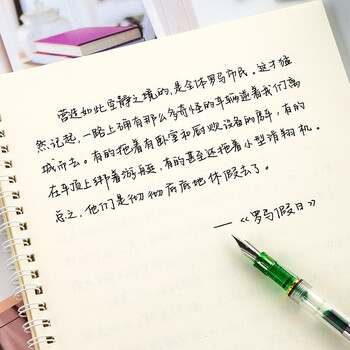 营造如此空静之境的,是全体罗马市民。这才猛
然记起,一路上确有那么多奇怪的车辆逆着我们离
城而去。有的拖着有卧室和厨炊设备的房车,有的
在车顶上绑着游艇,有的甚至还拖着小型滑翔机。
总之,他们是彻彻底底地休假去了。
——《罗马假日》